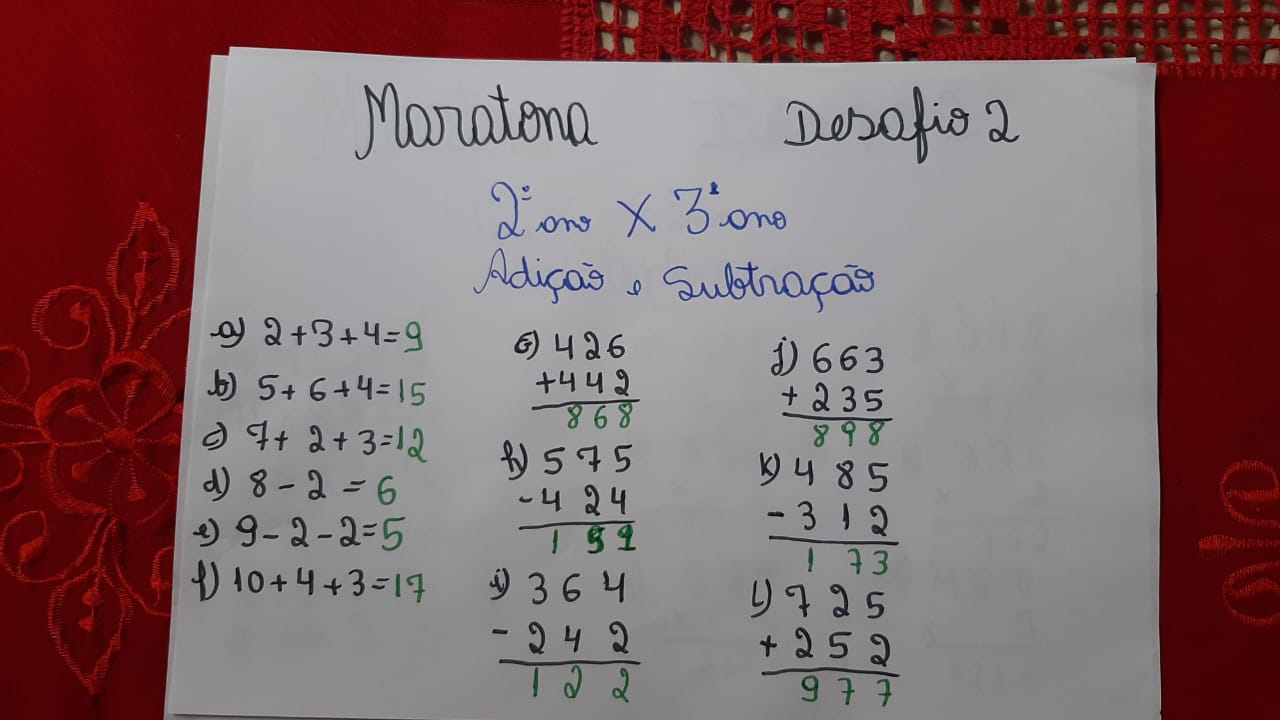 Maratona
Desafio 2
2º ano X 3º ano
Adição e Subtração
a) 2+3+4=9
b) 5+6+4=15
c) 7+2+3=12
d) 8-2=6
e) 9-2-2=5
f) 10+4+3=17
G) 426
+442
868
h) 575
-424
151
i) 364
-242
122
j) 663
+235
898
k) 485
-312
173
l) 725
+252
977